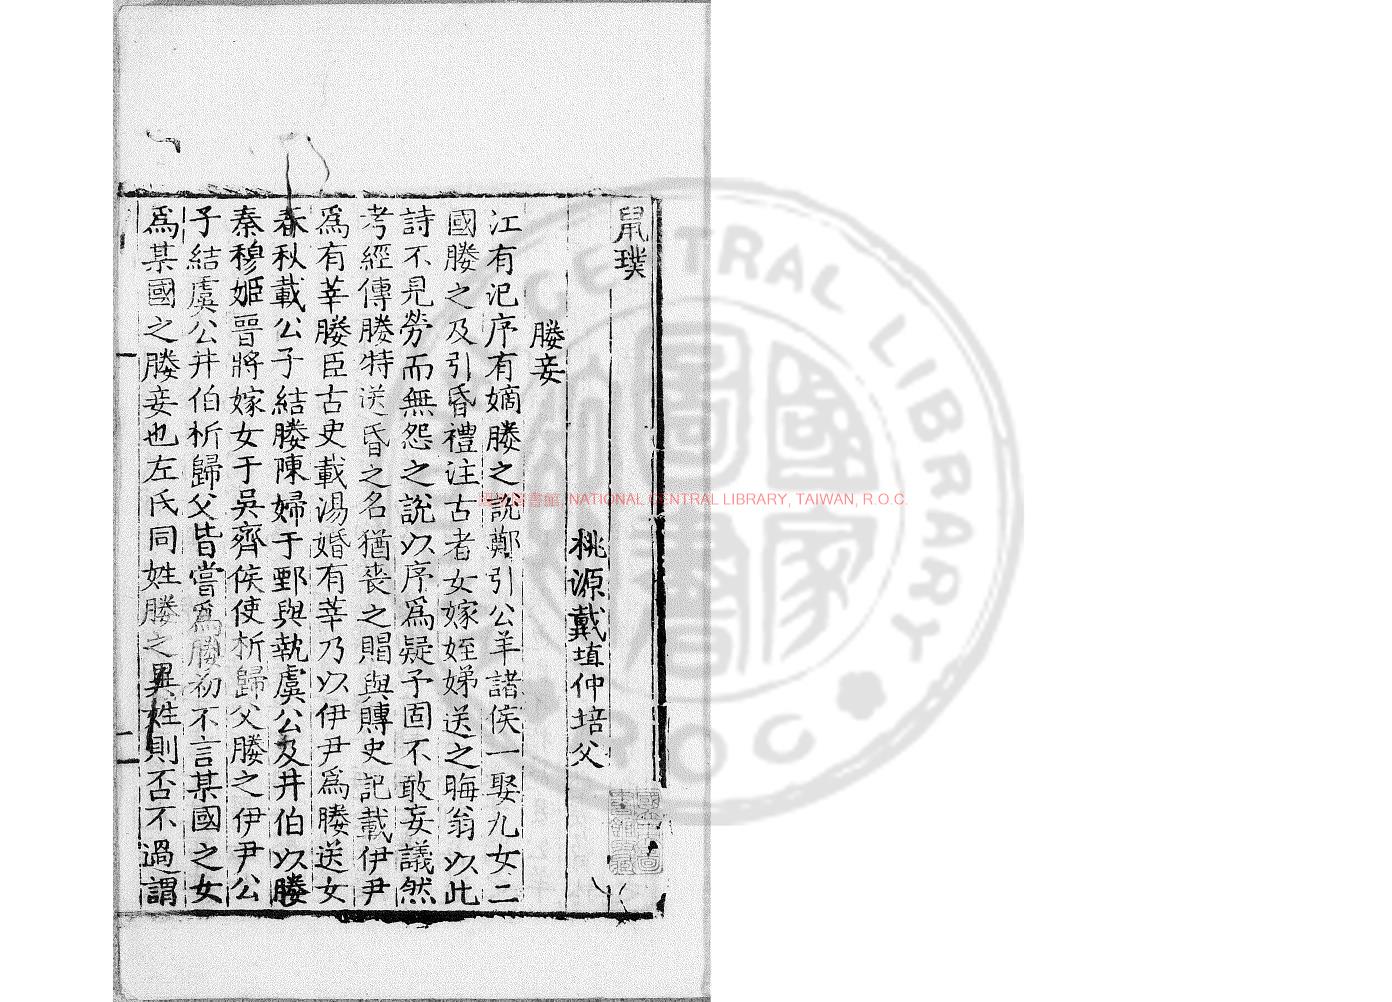 鼠璞
桃源戴埴仲培父
媵妾
江有汜序有嫡媵之說鄭引公羊諸侯一娶九女二
國媵之及引昏禮注古者女嫁姪娣送之晦翁以此
詩不見勞而無怨之說以序為疑予固不敢妄議然
考經傳媵特送昏之名猶喪之賵與賻史記載伊尹
為有莘媵臣古史載湯婚有莘乃以伊尹為媵送女
春秋載公子結媵陳婦于鄄與執虞公及井伯以媵
秦穆姬晉將嫁女于吳齊侯使析歸父媵之伊尹公
子結虞公井伯析歸父皆嘗為媵初不言某國之女
為某國之媵妾也左氏同姓媵之異姓則否不過謂
二
CENTRAL LIBRARY
R.O.C
國家圖書館 NATIONAL CENTRAL LIBRARY, TAIWAN, R.O.C.